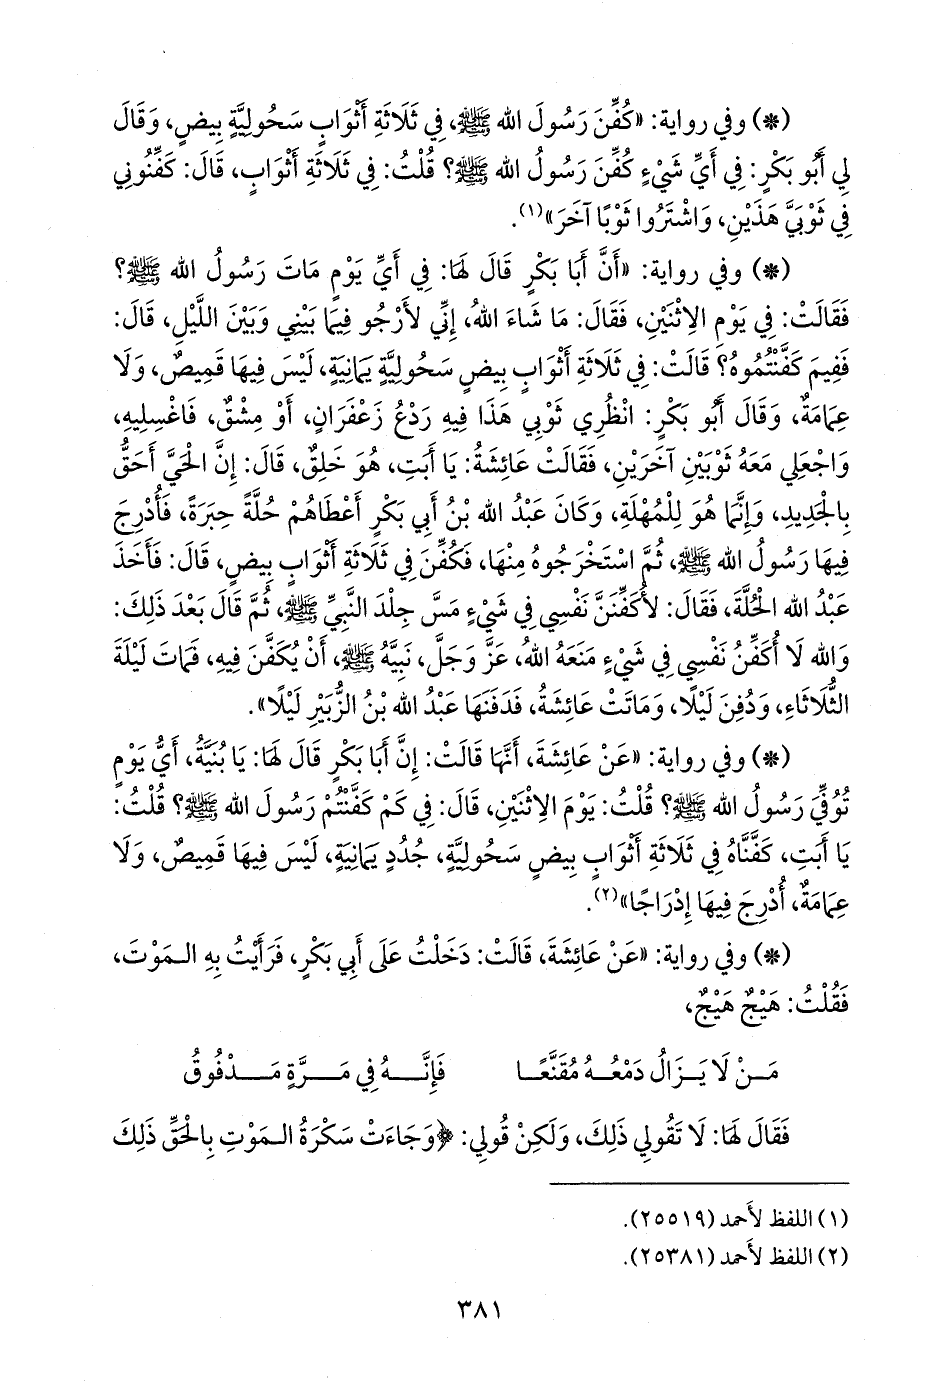 (*) وفي رواية: «كُفِّنَ رَسُولَ الله ﷺ، فِي ثَلَاثَةِ أَثْوَابٍ سَحُولِيَّةٍ بِيضٍ، وَقَالَ
لِي أَبُو بَكْرٍ: فِي أَيِّ شَيْءٍ كُفِّنَ رَسُولُ الله ﷺ؟ قُلْتُ: فِي ثَلَاثَةِ أَثْوَابٍ، قَالَ: كَفِّنُونِي
فِي ثَوْبَيَّ هَذَيْنِ، وَاشْتَرُوا ثَوْبًا آخَرَ»(١).
(*) وفي رواية: «أَنَّ أَبَا بَكْرٍ قَالَ لَهَا: فِي أَيِّ يَوْمٍ مَاتَ رَسُولُ الله ﷺ؟
فَقَالَتْ: فِي يَوْمِ الِاثْنَيْنِ، فَقَالَ: مَا شَاءَ اللهُ، إِنِّي لَأَرْجُو فِيمَا بَيْنِي وَبَيْنَ اللَّيْلِ، قَالَ:
فَفِيمَ كَفَّنْتُمُوهُ؟ قَالَتْ: فِي ثَلَاثَةِ أَثْوَابٍ بِيضٍ سَحُولِيَّةٍ يَمَانِيَةٍ، لَيْسَ فِيهَا قَمِيصٌ، وَلَا
عِمَامَةٌ، وَقَالَ أَبُو بَكْرٍ: انْظُرِي ثَوْبِي هَذَا فِيهِ رَدْعُ زَعْفَرَانٍ، أَوْ مِشْقٌ، فَاغْسِلِيهِ،
وَاجْعَلِي مَعَهُ ثَوْبَيْنِ آخَرَيْنِ، فَقَالَتْ عَائِشَةُ: يَا أَبَتِ، هُوَ خَلِقٌ، قَالَ: إِنَّ الْحَيَّ أَحَقُّ
بِالْجَدِيدِ، وَإِنَّمَا هُوَ لِلْمُهْلَةِ، وَكَانَ عَبْدُ الله بْنُ أَبِي بَكْرٍ أَعْطَاهُمْ حُلَّةً حِبَرَةً، فَأُدْرِجَ
فِيهَا رَسُولُ الله ﷺ، ثُمَّ اسْتَخْرَجُوهُ مِنْهَا، فَكُفِّنَ فِي ثَلَاثَةِ أَثْوَابٍ بِيضٍ، قَالَ: فَأَخَذَ
عَبْدُ الله الْحُلَّةَ، فَقَالَ: لَأُكَفِّنَنَّ نَفْسِي فِي شَيْءٍ مَسَّ جِلْدَ النَّبِيِّ ﷺ، ثُمَّ قَالَ بَعْدَ ذَلِكَ:
وَالله لَا أُكَفِّنُ نَفْسِي فِي شَيْءٍ مَنَعَهُ اللهُ، عَزَّ وَجَلَّ، نَبِيَّهُ ﷺ، أَنْ يُكَفَّنَ فِيهِ، فَمَاتَ لَيْلَةَ
الثُّلَاثَاءِ، وَدُفِنَ لَيْلًا، وَمَاتَتْ عَائِشَةُ، فَدَفَنَهَا عَبْدُ الله بْنُ الزُّبَيْرِ لَيْلًا».
(*) وفي رواية: «عَنْ عَائِشَةَ، أَنَّهَا قَالَتْ: إِنَّ أَبَا بَكْرٍ قَالَ لَهَا: يَا بُنَيَّةُ، أَيُّ يَوْمٍ
تُوُفِّيَ رَسُولُ الله ﷺ؟ قُلْتُ: يَوْمَ الِاثْنَيْنِ، قَالَ: فِي كَمْ كَفَّنْتُمْ رَسُولَ الله ﷺ؟ قُلْتُ:
يَا أَبَتِ، كَفَّنَّاهُ فِي ثَلَاثَةِ أَثْوَابٍ بِيضٍ سَحُولِيَّةٍ، جُدُدٍ يَمَانِيَةٍ، لَيْسَ فِيهَا قَمِيصٌ، وَلَا
عِمَامَةٌ، أُدْرِجَ فِيهَا إِدْرَاجًا»(٢).
(*) وفي رواية: «عَنْ عَائِشَةَ، قَالَتْ: دَخَلْتُ عَلَى أَبِي بَكْرٍ، فَرَأَيْتُ بِهِ الـمَوْتَ،
فَقُلْتُ: هَيْجٌ هَيْجٌ،
مَـنْ لَا يَـزَالُ دَمْعُـهُ مُقَنَّعًـا فَإِنَّـهُ فِي مَـرَّةٍ مَـدْفُوقُ
فَقَالَ لَهَا: لَا تَقُولِي ذَلِكَ، وَلَكِنْ قُولِي: ﴿وَجَاءَتْ سَكْرَةُ الـمَوْتِ بِالْحَقِّ ذَلِكَ
(١) اللفظ لأحمد (٢٥٥١٩).
(٢) اللفظ لأحمد (٢٥٣٨١).
٣٨١